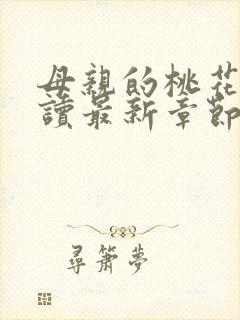 母親的桃花
讀最新章節
尋簫夢